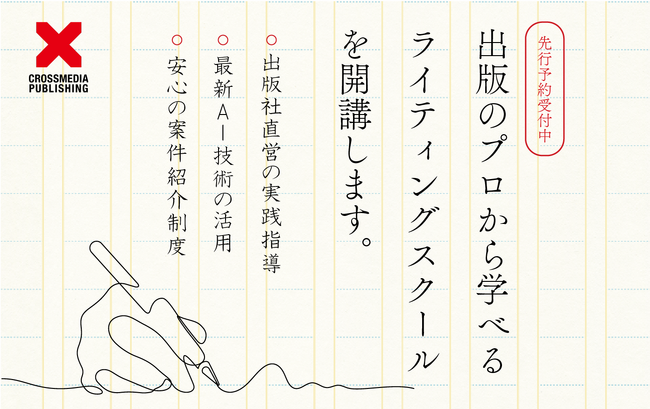 先行予約受付中
出版のプロから学べる
ライティングスクール
を開講します。
○ 出版社直営の実践指導
○ 最新AI技術の活用
○ 安心の案件紹介制度
CROSSMEDIA
PUBLISHING